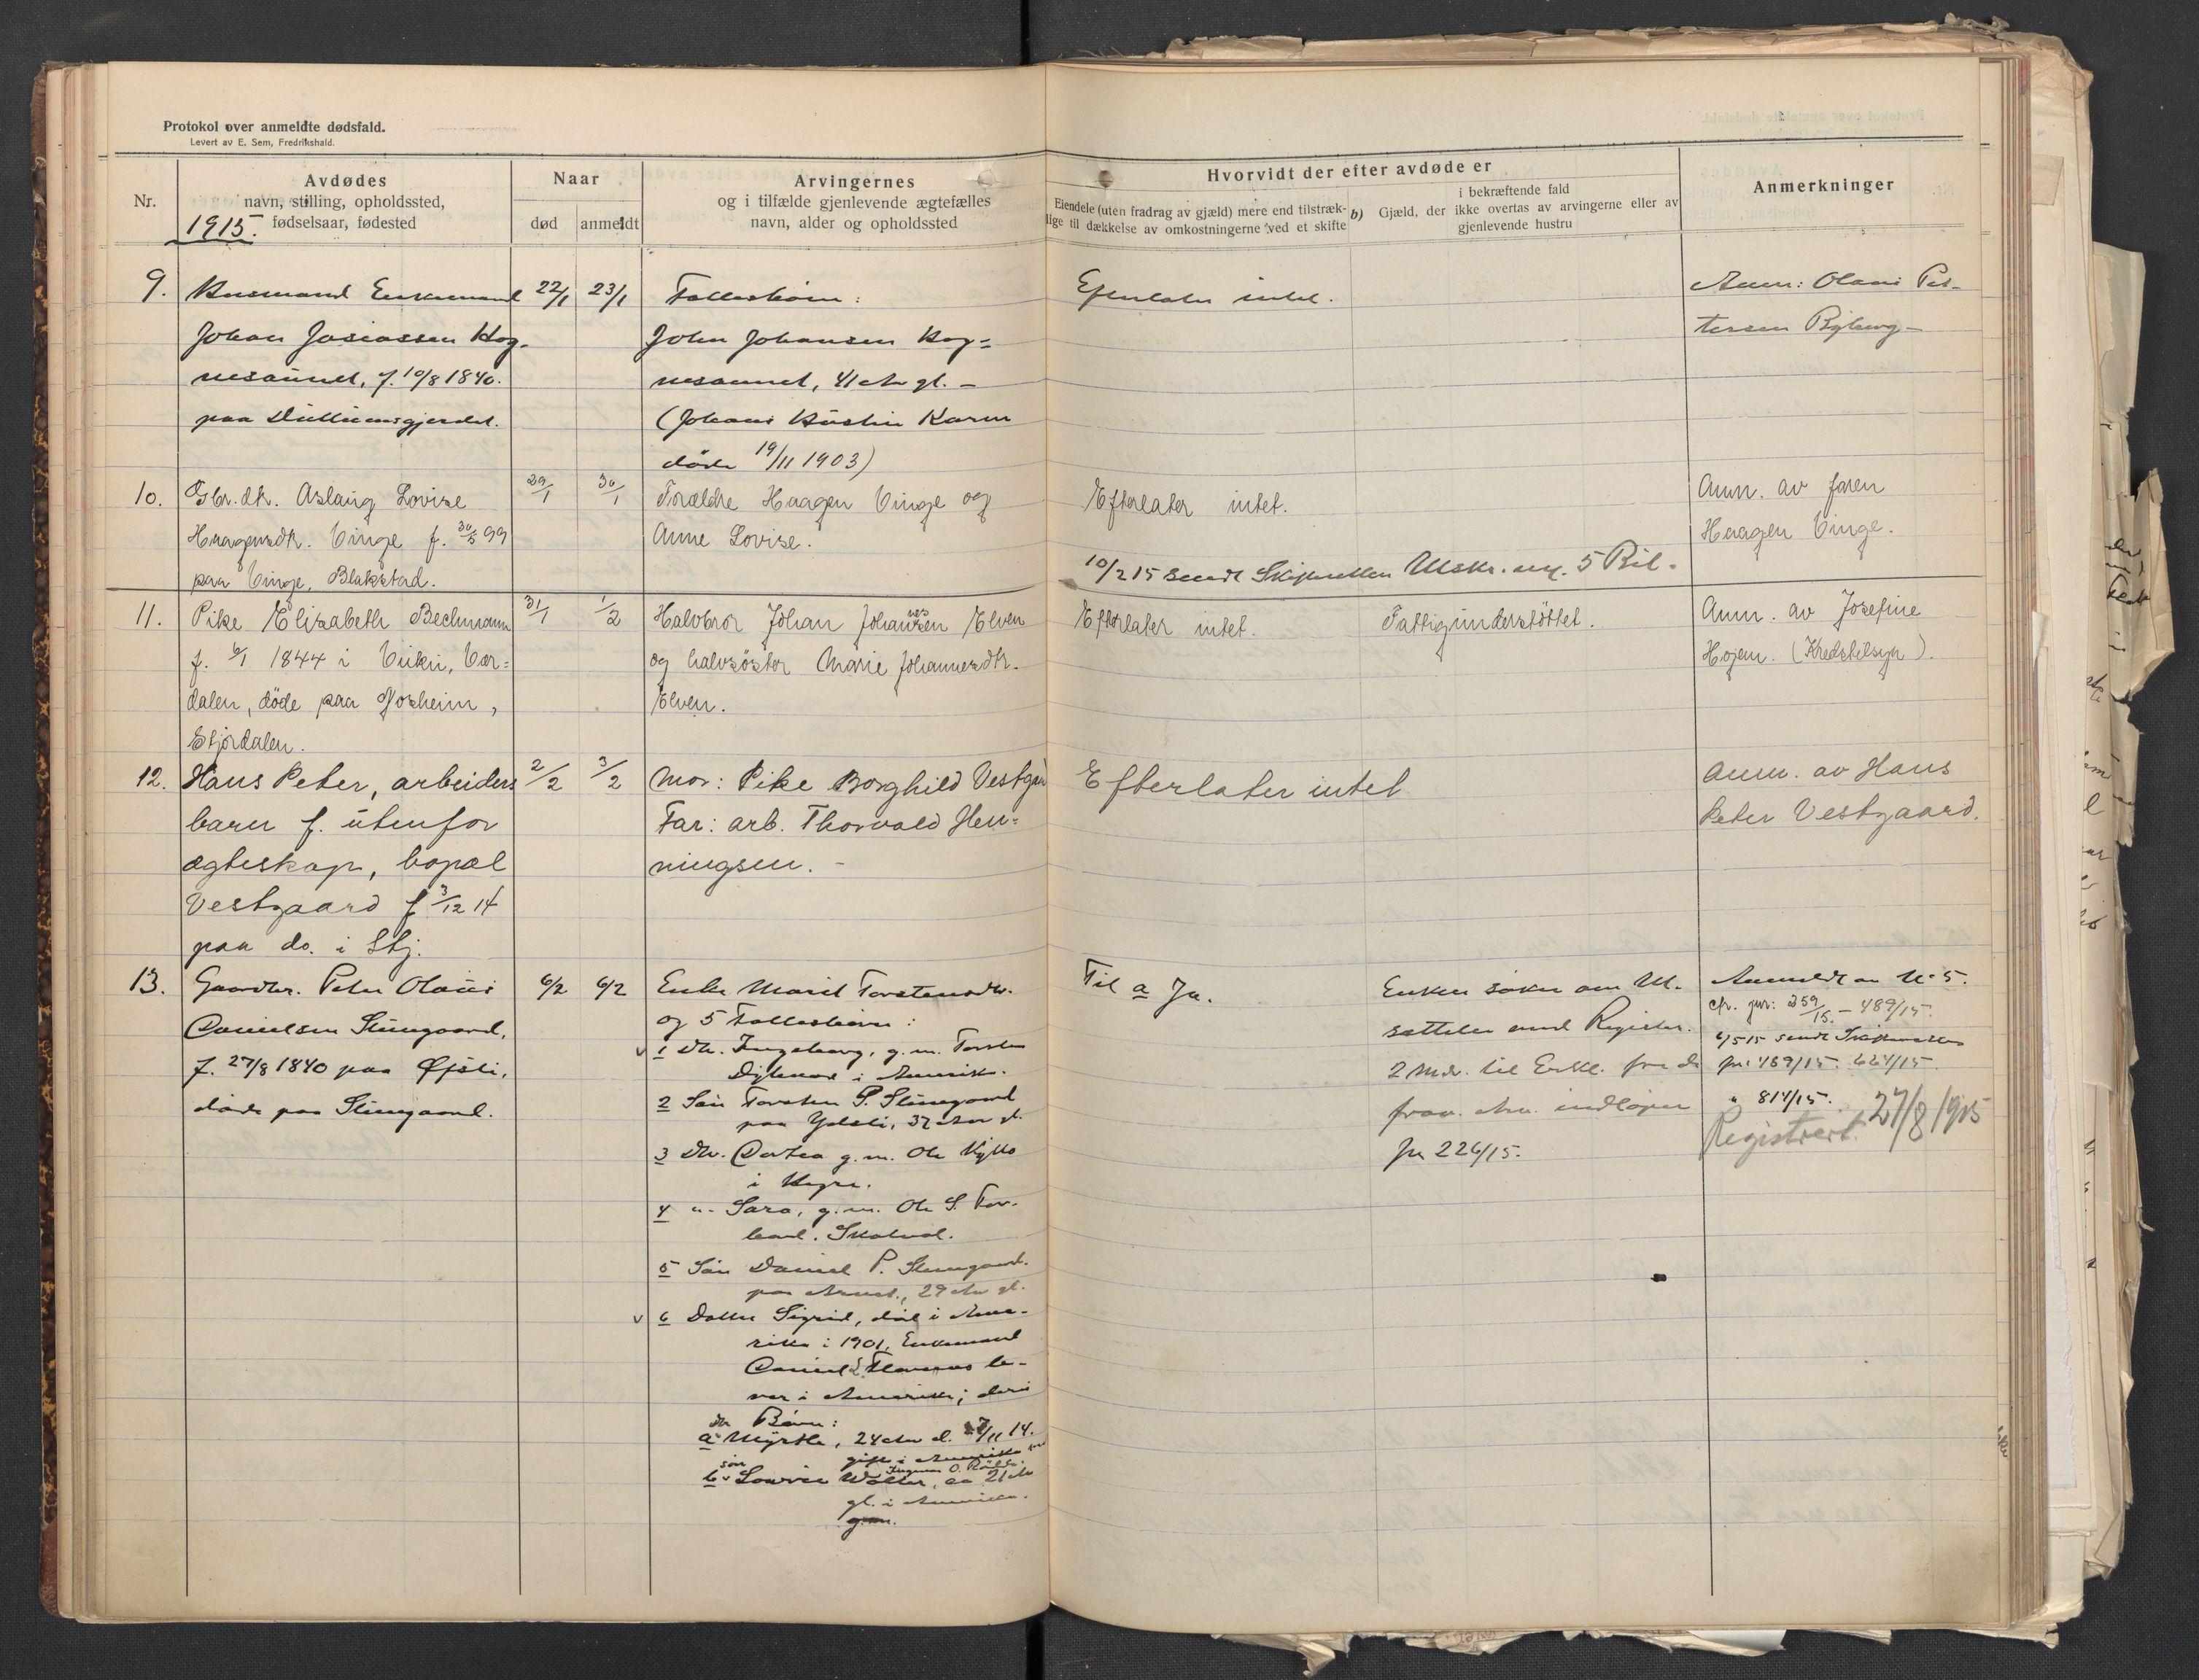 Protokol over anmeldte dødsfald.
Levert av E. Sem, Fredrikshald.
Nr.
Avdødes
navn, stilling, opholdssted,
fødselsaar, fødested
1915.
Naar
død
anmeldt
Arvingernes
og i tilfælde gjenlevende ægtefælles
navn, alder og opholdssted
Hvorvidt der efter avdøde er
Eiendele (uten fradrag av gjæld) mere end tilstræk-
lige til dækkelse av omkostningerne ved et skifte
b) Gjæld, der
i bekræftende fald
ikke overtas av arvingerne eller av
gjenlevende hustru
Anmerkninger
9.
Husmand Enkemand
Johan Josiassen Hog-
nesaunet, f. 10/8 1840.
paa
22/1
23/1
Fællesbørn:
John Johansen Hog-
nesaunet, 41 aar gl. -
(Johans Hustru Karen
døde 19/11 1903)
Efterlater intet.
Anm: Olaus Pet-
tersen
10.
Gbr. dtr. Aslaug Lovise
Haagensdtr. Vinge f. 30/5 99
paa Vinge, Blakstad.
29/1
30/1
Forældre Haagen Vinge og
Anne Lovise.
Efterlater intet.
Anm. av faren
Haagen Vinge.
10/2 15 sendt Skifteretten Utskr. av 5 Bil.
11.
Pike Elisabeth Bechmann
f. 6/1 1844 i Vuku, Vær=
dalen, døde paa Moxheim,
Stjørdalen.
31/1
1/2
Halvbror Johan Johannesen Elven
og halvsøster Marie Johannesdtr.
Elven.
Efterlater intet.
Fattigunderstøttet.
Anm. av Josefine
Hojem. (Kredstilsyn).
12.
Hans Peter, arbeiders
barn f. utenfor
ægteskap, bopæl
Vestgaard f 3/12 14
paa do. i Stj.
2/2
3/2
Mor: Pike Borghild Vestgrd
Far: arb. Thorvald Hen=
ningsen. -
Efterlater intet
Anm. av Hans
Peter Vestgaard.
13.
Gaardbr. Peter Olaus
Danielsen Stuugaard,
f. 27/8 1840 paa Øfsti,
døde paa Stuugaard.
6/2
6/2
Enke Marit Torstensdtr.
og 5 Fællesbørn:
1 Dtr. Ingeborg, g.m. Torsten
i Amerika.
2 Søn Torsten P. Stuugaard
paa 37 aar gl.
3 Dtr. Dortea g.m. Ole
i Hegre.
4 " Sara, g.m. Ole S. For-
bord. Skatval.
5 Søn Daniel P. Stuugaard.
29 aar gl.
6 Datter Sigrid, død i Ame-
rika i 1901, Enkemand
Daniel le-
ver i Amerika; deres
Børn:
a dtr Myrtle, 24 aar d. 27/11 14.
gift i Amerika
b søn Walter, ca 21 aar
gl. i Amerika.
g.m.
Til a Ja.
Enken søker om U.
sættelse med Registr.
2 Mdr. til Erkl. fra de
frav. Arv. indløper
jnr 226/15.
Anmeldt av No 5.
cfr. jnr: 359/15. - 489/15.
6/5 15 sendt Skifteretten
jnr 489/15. 624/15.
" 814/15.
Registrert. 27/8 1915